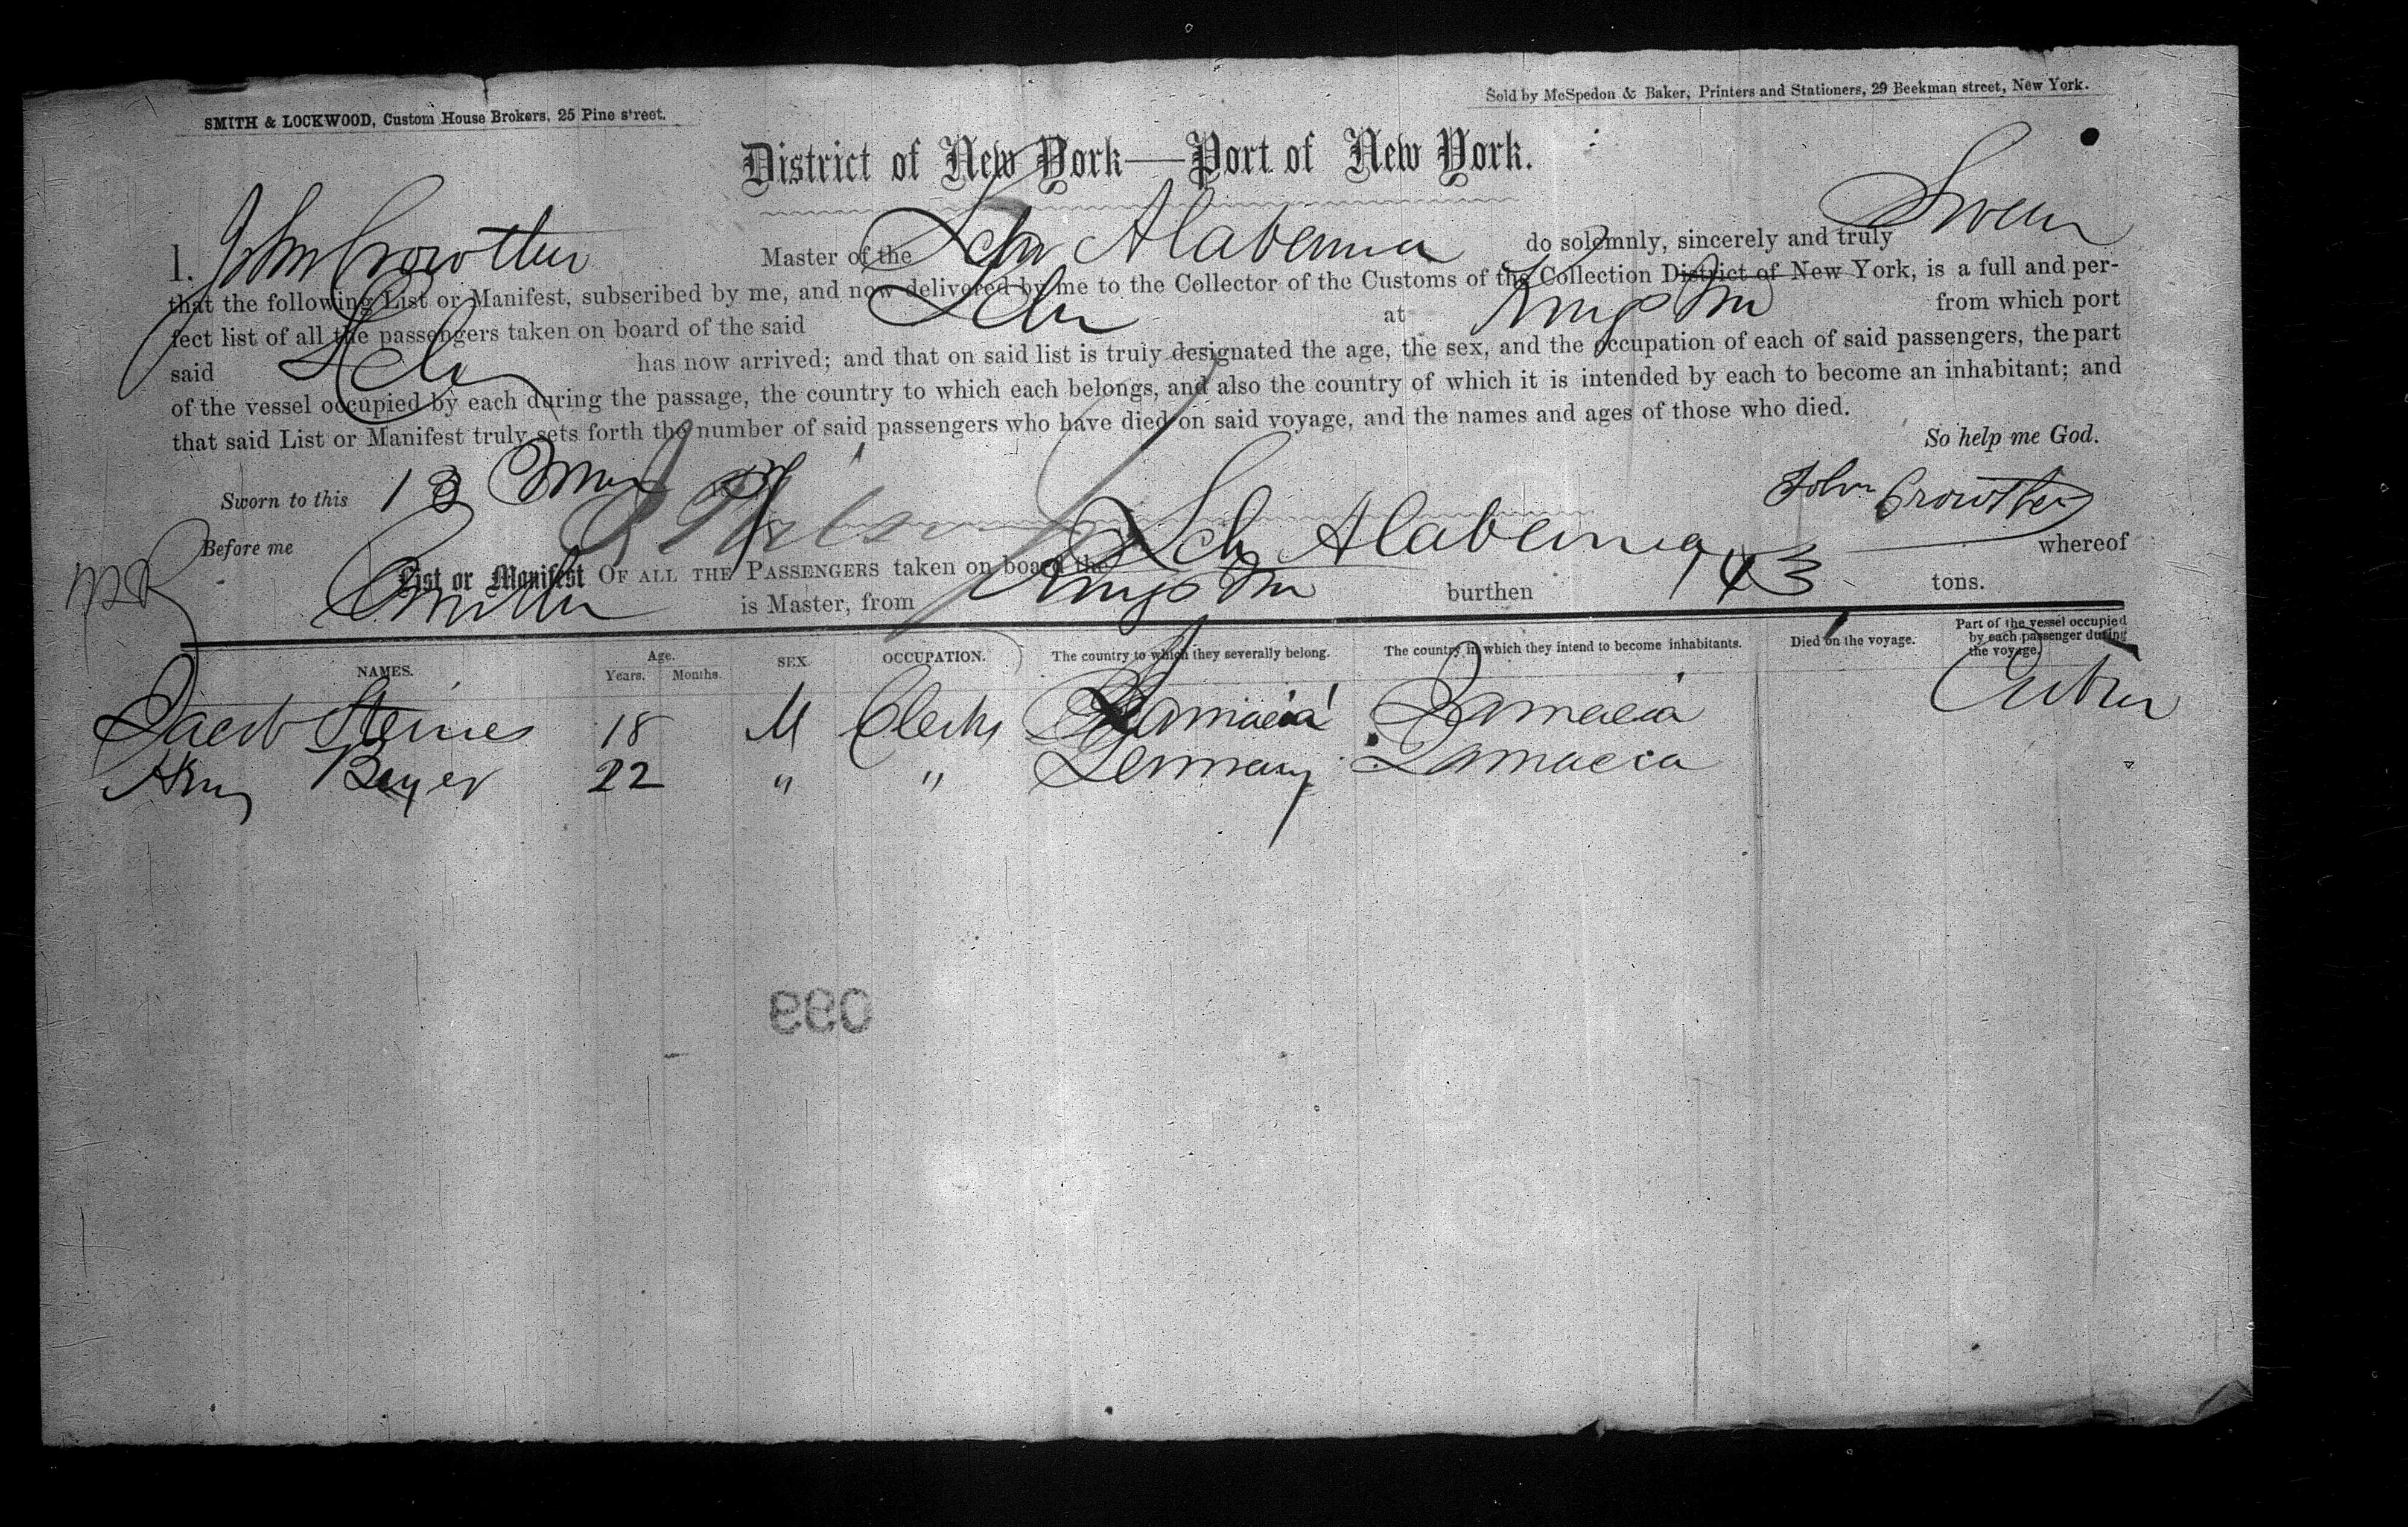 SMITH & LOCKWOOD, Custom House Brokers, 25 Pine street.
Sold by McSpedon & Baker, Printers and Stationers, 29 Beekman street, New York.
District of New York—Port of New York.
I. John Crowther Master of the Schr Alabama do solemnly, sincerely and truly Swear
that the following List or Manifest, subscribed by me, and now delivered by me to the Collector of the Customs of the Collection District of New York, is a full and per-
fect list of all the passengers taken on board of the said Schr at Kingston from which port
said Schr has now arrived; and that on said list is truly designated the age, the sex, and the occupation of each of said passengers, the part
of the vessel occupied by each during the passage, the country to which each belongs, and also the country of which it is intended by each to become an inhabitant; and
that said List or Manifest truly sets forth the number of said passengers who have died on said voyage, and the names and ages of those who died.
So help me God.
Sworn to this 13
John Crowther
Before me
List or Manifest OF ALL THE PASSENGERS taken on board the Sch Alabama whereof
is Master, from Kingston burthen 143 tons.
NAMES. Age. Years. Months. SEX. OCCUPATION. The country to which they severally belong. The country in which they intend to become inhabitants. Died on the voyage. Part of the vessel occupied by each passenger during the voyage.
Jacob Steines 18 M Clerks Jamaica Jamaica
Beyer 22 " " Germany Jamaica
099